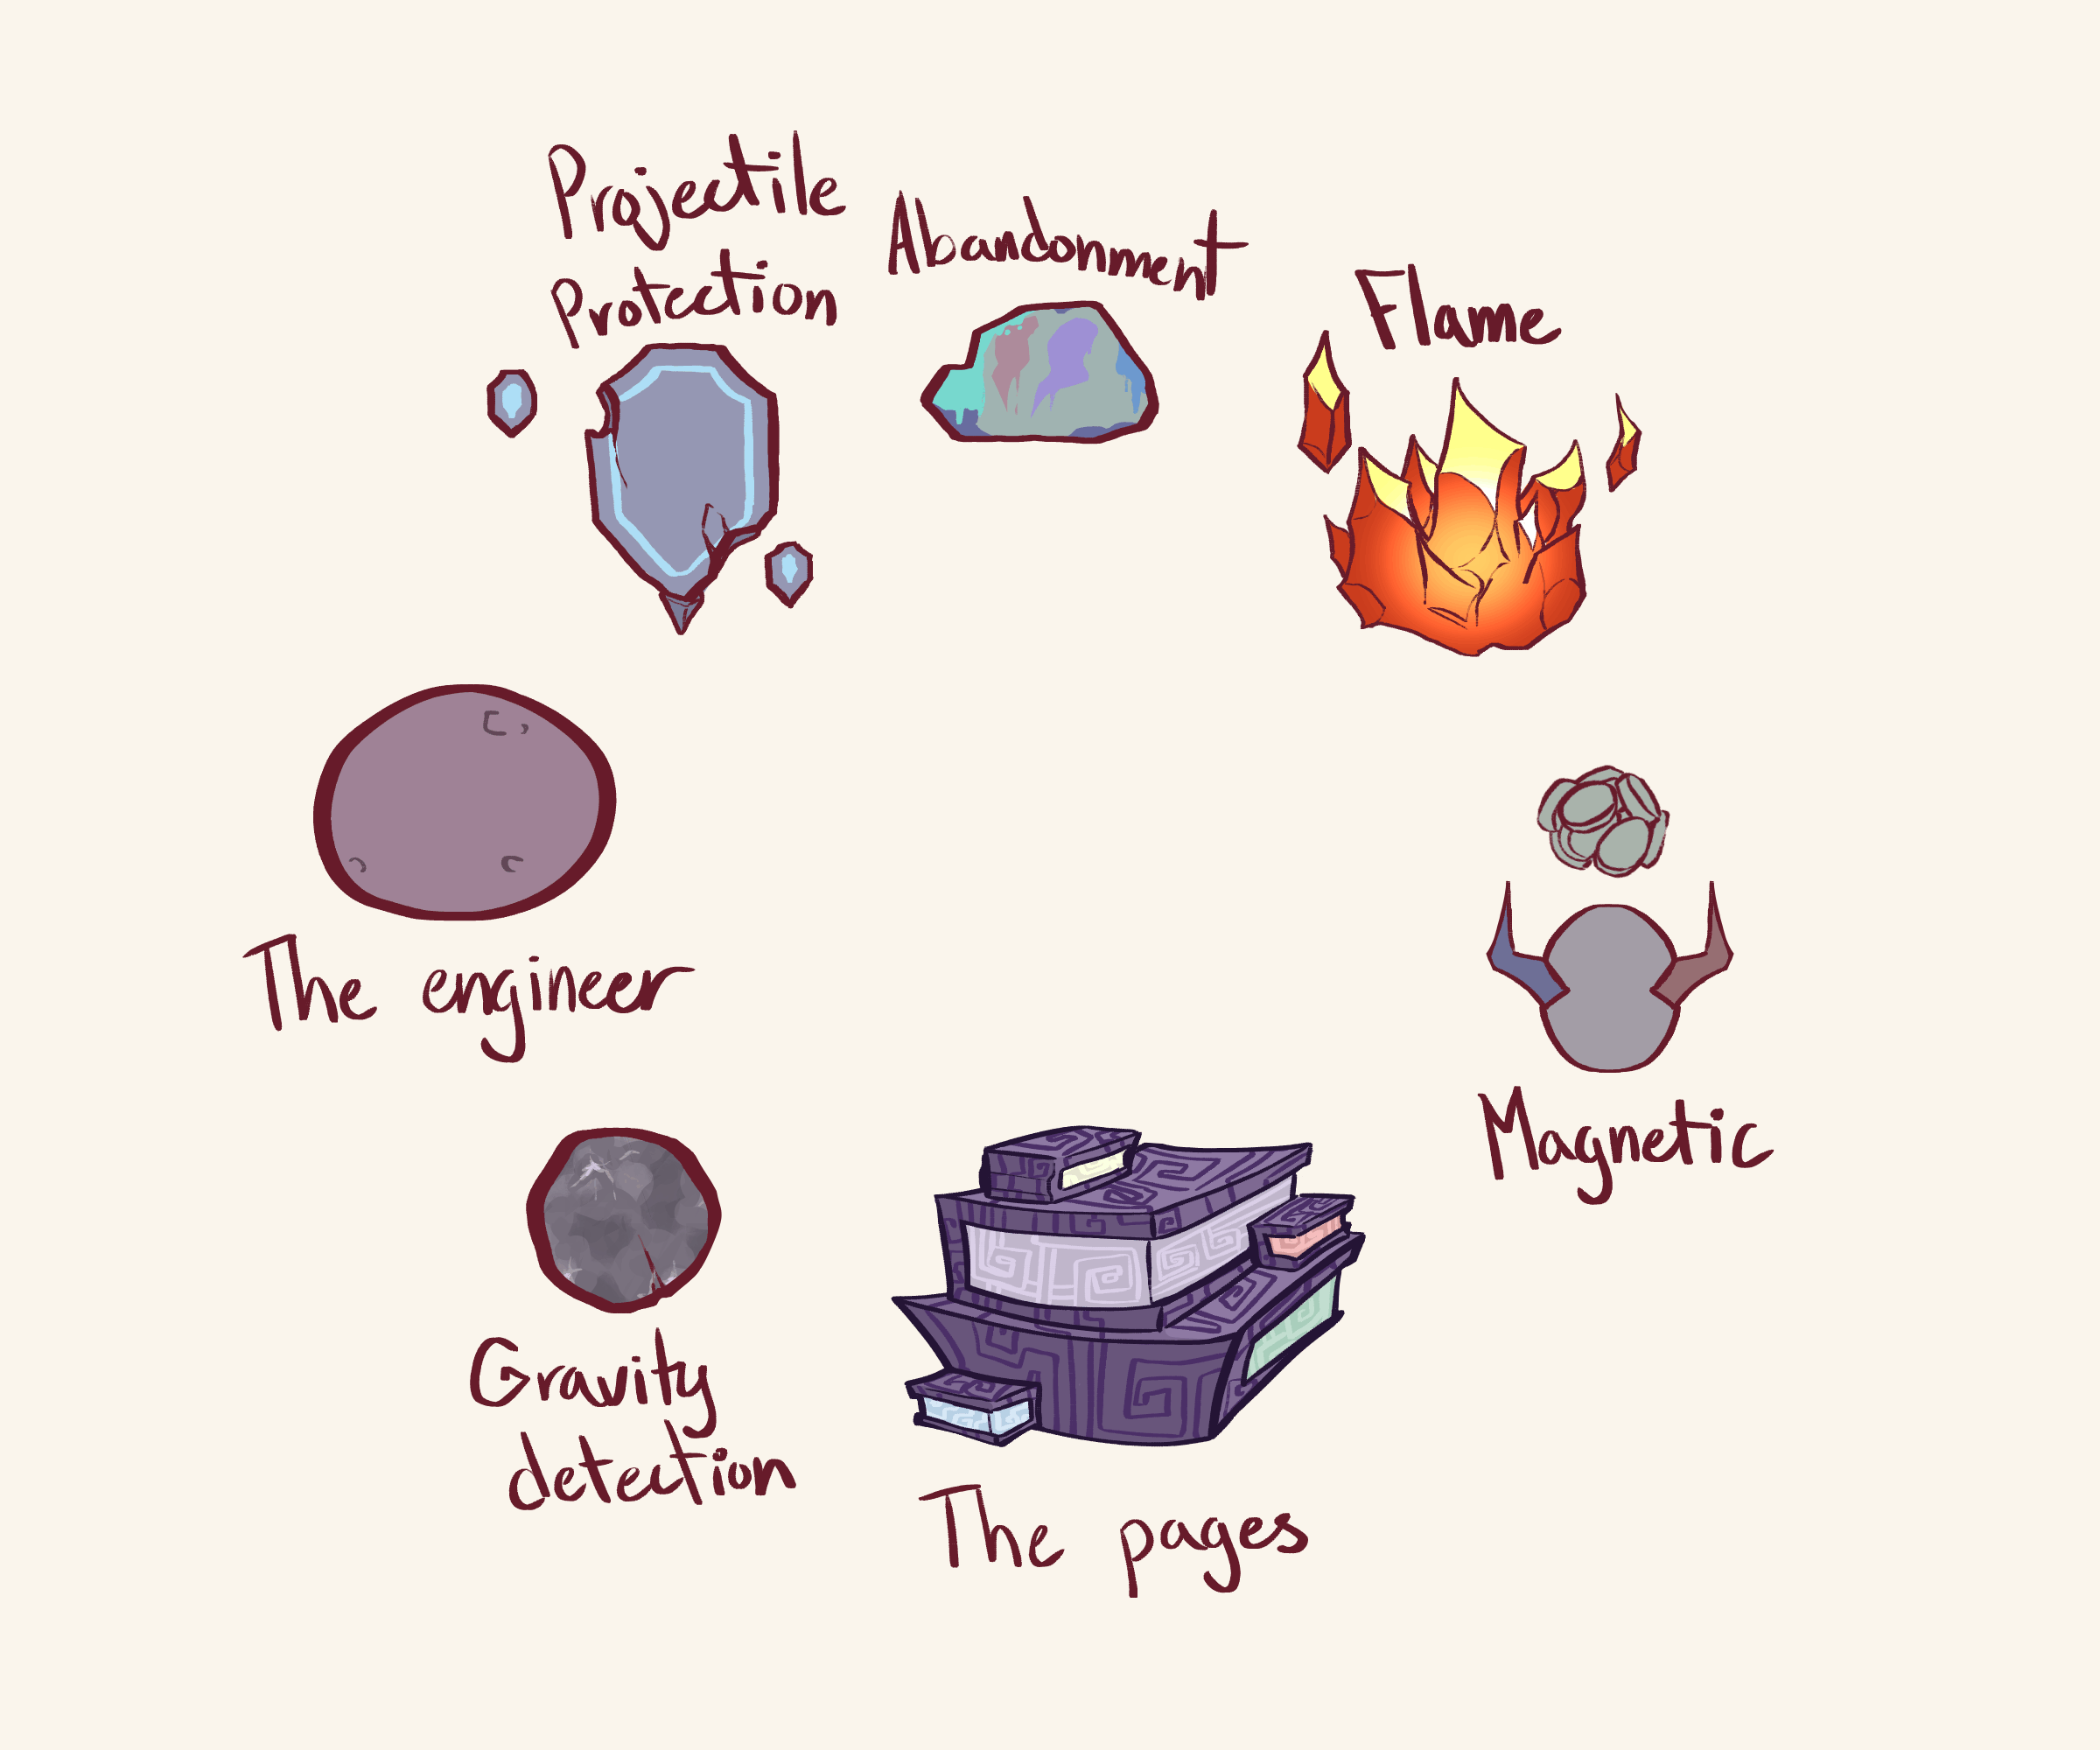 Projectile
Protection
Abandonment
Flame
The engineer
Magnetic
Gravity
detection
The pages